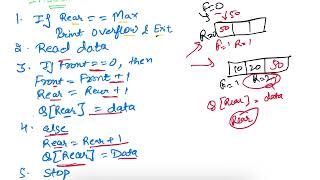 1. If Rear == Max
Print Overflow & Exit
2. Read data
3. If Front==0, then
Front = Front+1
Rear = Rear+1
Q[Rear] = data
4. else
Rear = Rear+1
Q[Rear] = Data
5. Stop
F=0
50
R=0
50
F=1 R=1
10 20 50
F=1 R=2
Q[Rear] = data
Rear